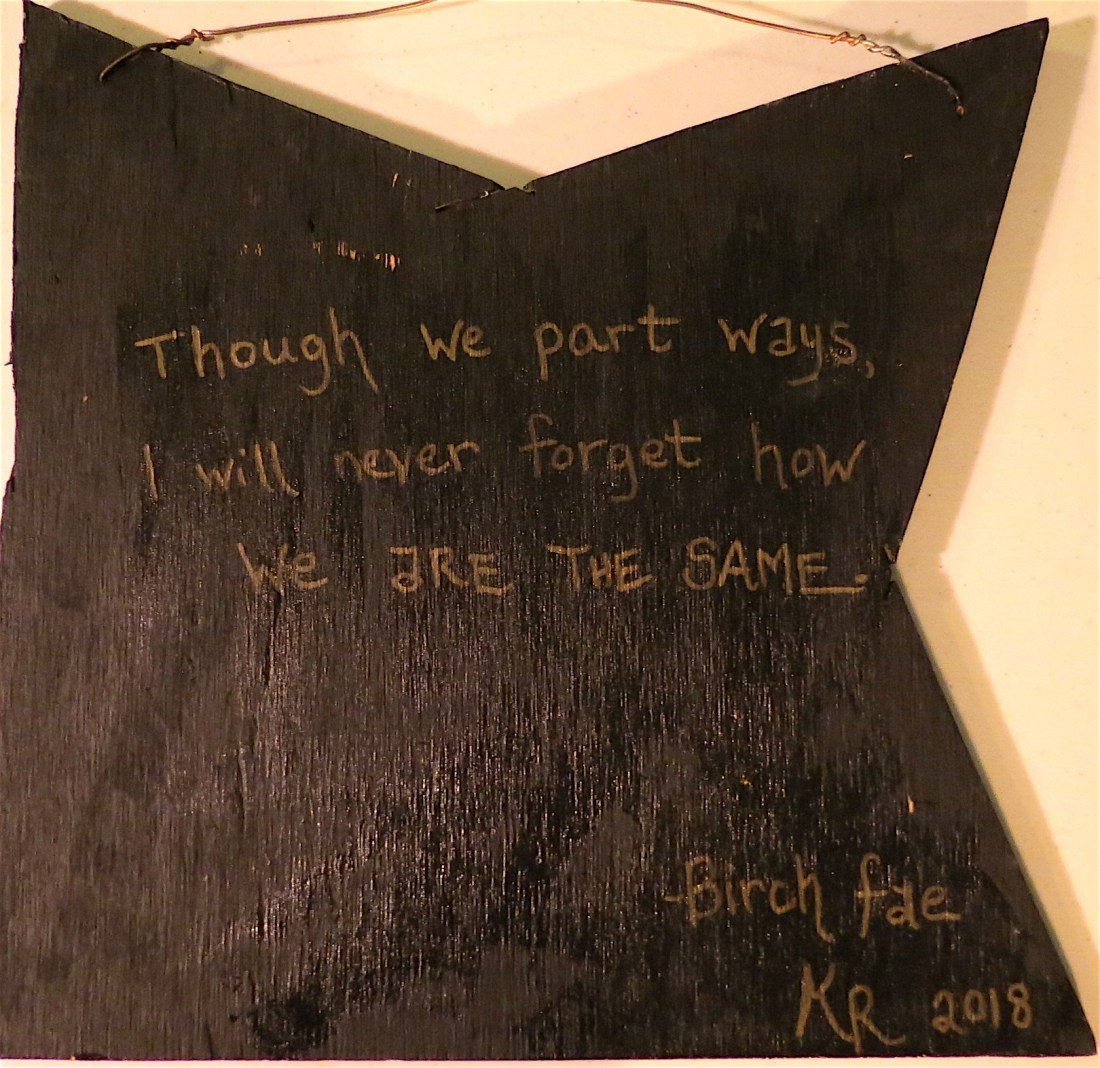 Though we part ways,
I will never forget how
We ARE THE SAME.
-Birch fae
KR 2018